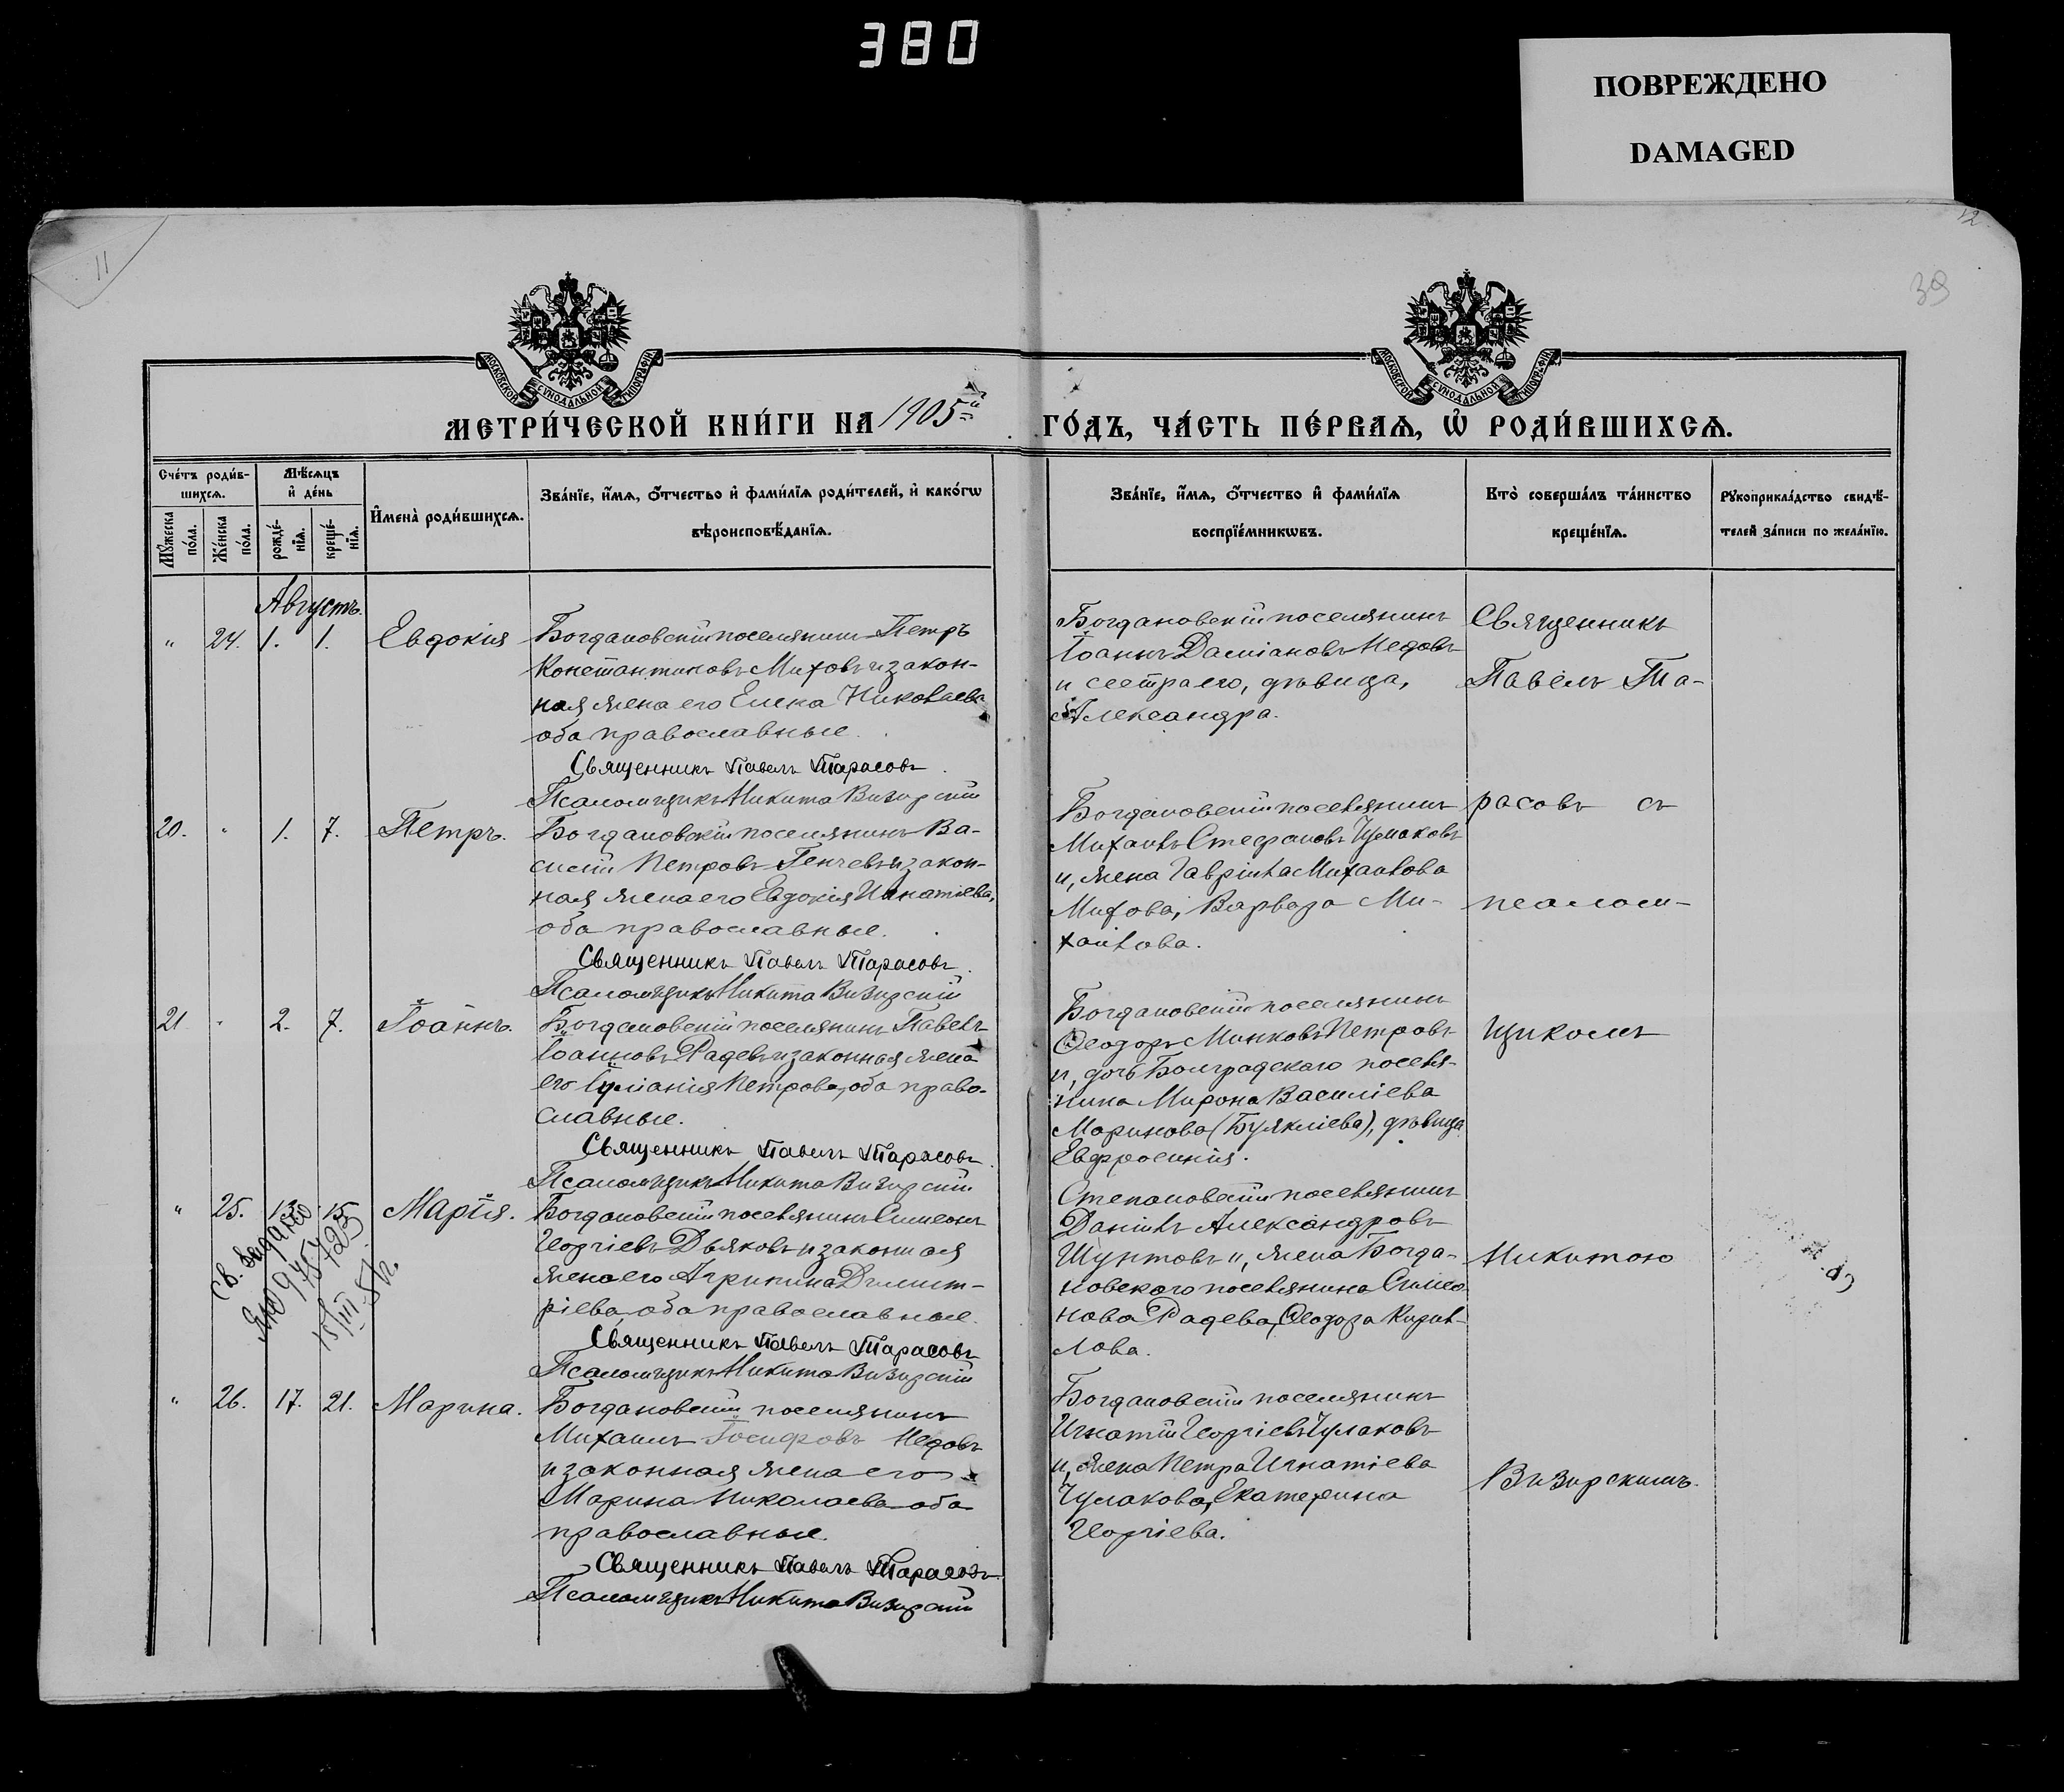 380
ПОВРЕЖДЕНО
DAMAGED
11
12
39
МОСКОВСКОЙ СѴНОДАЛЬНОЙ ТИПОГРАФІИ
МОСКОВСКОЙ СѴНОДАЛЬНОЙ ТИПОГРАФІИ
МЕТРИ́ЧЕСКОЙ КНИ́ГИ НА 1905й ГО́ДЪ, ЧА́СТЬ ПЕ́РВАѦ, Ѡ РОДИ́ВШИХСѦ.
Сче́тъ роди́в-
шихсѧ.
Мѣ́сѧцъ
и҆ де́нь
Мꙋ́жеска
по́ла.
Же́нска
по́ла.
рожде́-
нїѧ.
креще́-
нїѧ.
И҆мена̀ роди́вшихсѧ.
Зва́нїе, и҆́мѧ, ѻ҆́тчество и҆ фами́лїѧ роди́телей, и҆ како́гѡ
вѣроисповѣ́данїѧ.
Зва́нїе, и҆́мѧ, ѻ҆́тчество и҆ фами́лїѧ
воспрїе́мникѡвъ.
Кто̀ соверша́лъ та́инство
креще́нїѧ.
Рꙋкоприкла́дство свидѣ́-
телей за́писи по жела́нїю.
Августъ.
" 24. 1. 1. Евдокія
Богдановскій поселянинъ Петръ
Константиновъ Миховъ и закон-
ная жена его Елена Николаева
оба православные.
Священникъ Павелъ Тарасовъ
Псаломщикъ Никита Визирскій
Богдановскій поселянинъ
Іоаннъ Даміановъ Недовъ
и сестра его, дѣвица,
Александра.
Священникъ
Павелъ Та-
20. " 1. 7. Петръ.
Богдановскій поселянинъ Ва-
силій Петровъ Генчевъ и закон-
ная жена его Евдокія Игнатіева,
оба православные.
Священникъ Павелъ Тарасовъ
Псаломщикъ Никита Визирскій
Богдановскій поселянинъ
Михаилъ Стефановъ Чумаковъ
и, жена Гавріила Михаилова
Михова, Варвара Ми-
хаилова.
расовъ съ
псалом-
21 " 2. 7. Іоаннъ.
Богдановскій поселянинъ Павелъ
Іоанновъ Радевъ и законная жена
его Іуліанія Петрова, оба право-
славные.
Священникъ Павелъ Тарасовъ
Псаломщикъ Никита Визирскій
Богдановскій поселянинъ
Ѳеодоръ Минковъ Петровъ
и, дочь Болградскаго поселя-
нина Мирона Василіева
Маринова (Буякліева), дѣвица
Евфросинія.
щикомъ
" 25. 13. 15. Марія.
Богдановскій поселянинъ Симеонъ
Георгіевъ Дьяковъ и законная
жена его Агрипина Димит-
ріева, оба православные.
Священникъ Павелъ Тарасовъ
Псаломщикъ Никита Визирскій
Степановскій поселянинъ
Даніилъ Александровъ
Шунтовъ и, жена Богда-
новскаго поселянина Симео-
нова Радева, Ѳеодора Кирил-
лова.
Никитою
Св. выдано
" 26. 17. 21. Марина.
Богдановскій поселянинъ
Михаилъ Іосифовъ Недовъ
и законная жена его
Марина Николаева оба
православные.
Священникъ Павелъ Тарасовъ
Псаломщикъ Никита Визирскій
Богдановскій поселянинъ
Игнатій Георгіевъ Чумаковъ
и, жена Петра Игнатіева
Чумакова, Екатерина
Георгіева.
Визирскимъ.